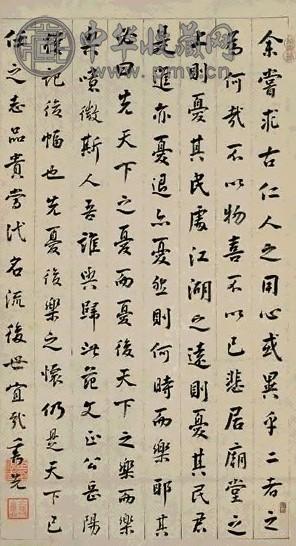 余嘗求古仁人之用心或異乎二者之
為何哉不以物喜不以己悲居廟堂之
上則憂其民處江湖之遠則憂其民君
是進亦憂退亦憂然則何時而樂耶其
必曰先天下之憂而憂後天下之樂而樂
乎噫微斯人吾誰與歸此范文正公岳陽
樓記後幅也先憂後樂之懷仍是天下己
任之志品貴當代名流後世宜哉
中华收藏网